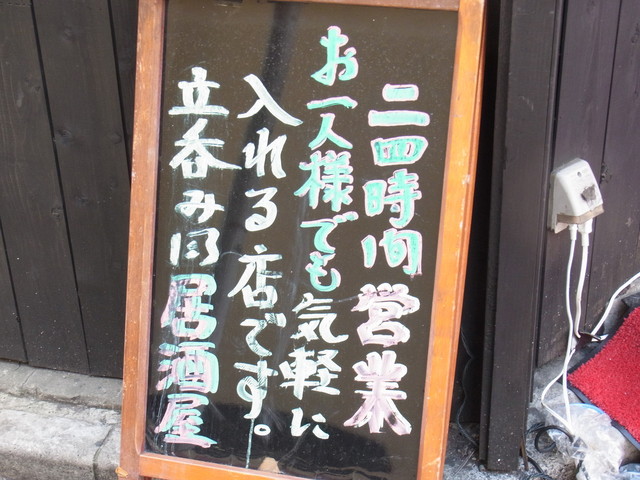 二四時間営業
お一人様でも気軽に
入れる店です。
立呑み風居酒屋